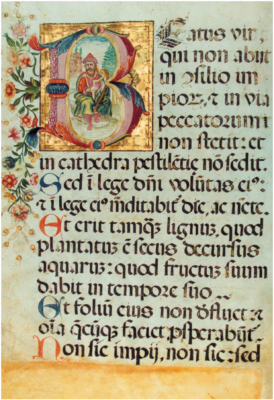 Beatus vir,
qui non abiit
in ↄsilio im
pior, ⁊ in via
peccatorum
non stetit: et
in cathedra pestilentie nō sedit.
Sed ī lege dn̄i volūtas eiꝰ:
⁊ ī lege eiꝰ meditabit die, ac nocte.
Et erit tamqȝ lignuȝ, quod
plantatuȝ ē secus decursus
aquaruȝ: quod fructuȝ suum
dabit in tempore suo
Et foliuȝ eius non dfluet: ⁊
oīa qēcūqȝ faciet, ꝓsperabūt̄.
Non sic impij, non sic: sed